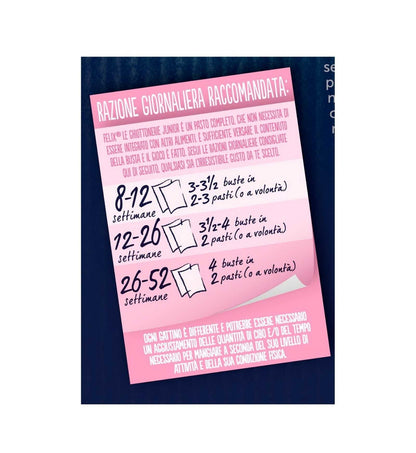 RAZIONE GIORNALIERA RACCOMANDATA:
FELIX® LE GHIOTTONERIE JUNIOR È UN PASTO COMPLETO, CHE NON NECESSITA DI
ESSERE INTEGRATO CON ALTRI ALIMENTI. È SUFFICIENTE VERSARE IL CONTENUTO
DELLA BUSTA E IL GIOCO È FATTO. SEGUI LE RAZIONI GIORNALIERE CONSIGLIATE
QUI DI SEGUITO, QUALSIASI SIA L'IRRESISTIBILE GUSTO DA TE SCELTO.
8-12 settimane 3-3½ buste in
2-3 pasti (o a volontà)
12-26 settimane 3½-4 buste in
2 pasti (o a volontà)
26-52 settimane 4 buste in
2 pasti (o a volontà)
OGNI GATTINO È DIFFERENTE E POTREBBE ESSERE NECESSARIO
UN AGGIUSTAMENTO DELLE QUANTITÀ DI CIBO E/O DEL TEMPO
NECESSARIO PER MANGIARE A SECONDA DEL SUO LIVELLO DI
ATTIVITÀ E DELLA SUA CONDIZIONE FISICA.